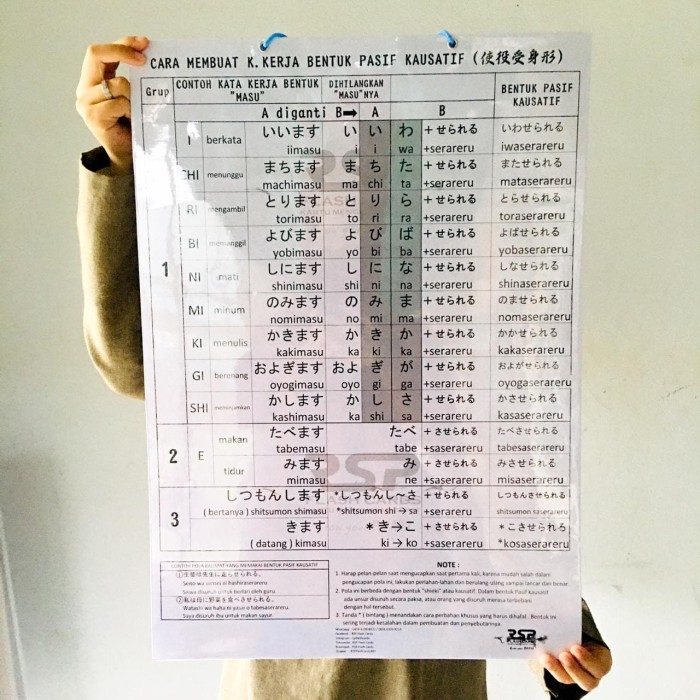 CARA MEMBUAT K.KERJA BENTUK PASIF KAUSATIF (使役受身形)
Grup CONTOH KATA KERJA BENTUK "MASU" DIHILANGKAN "MASU"NYA BENTUK PASIF KAUSATIF
A diganti B➡ A B
1
I berkata いいます い い わ +せられる いわせられる
iimasu i i wa +serareru iwaserareru
CHI menunggu まちます ま ち た +せられる またせられる
machimasu ma chi ta +serareru mataserareru
RI mengambil とります と り ら +せられる とらせられる
torimasu to ri ra +serareru toraserareru
BI memanggil よびます よ び ば +せられる よばせられる
yobimasu yo bi ba +serareru yobaserareru
NI mati しにます し に な +せられる しなせられる
shinimasu shi ni na +serareru shinaserareru
MI minum のみます の み ま +せられる のませられる
nomimasu no mi ma +serareru nomaserareru
KI menulis かきます か き か +せられる かかせられる
kakimasu ka ki ka +serareru kakaserareru
GI berenang およぎます およ ぎ が +せられる およがせられる
oyogimasu oyo gi ga +serareru oyogaserareru
SHI かします か し さ +せられる かさせられる
kashimasu ka shi sa +serareru kasaserareru
2 E
makan たべます たべ +させられる たべさせられる
tabemasu tabe +saserareru tabesaserareru
tidur みます み +させられる みさせられる
mimasu ne +saserareru misaserareru
3
しつもんします *しつもんし〜さ +せられる しつもんさせられる
( bertanya ) shitsumon shimasu *shitsumon shi → sa +serareru shitsumon saserareru
きます *き→こ +させられる *こさせられる
( datang ) kimasu ki → ko +saserareru *kosaserareru
CONTOH POLA KALIMAT YANG MEMAKAI BENTUK PASIF KAUSATIF
Seito wa sensei ni hashiraserareru.
Siswa disuruh untuk berlari oleh guru.
Watashi wa haha ni yasai o tabesaserareru.
Saya disuruh ibu untuk makan sayur.
NOTE :
1. Harap pelan-pelan saat mengucapkan saat pertama kali, karena mudah salah dalam
pengucapan pola ini, lakukan perlahan-lahan dan berulang-ulang sampai lancar dan benar.
2. Pola ini berbeda dengan bentuk "shieki" atau kausatif. Dalam bentuk Pasif kausatif
ada unsur disuruh secara paksa, atau orang yang disuruh merasa terbebani
dengan hal tersebut.
3. Tanda * ( bintang ) menandakan cara perubahan khusus yang harus dihafal. Bentuk ini
sering terjadi kesalahan dalam pembuatan dan penyebutannya.
RSP
FLASH CARDS